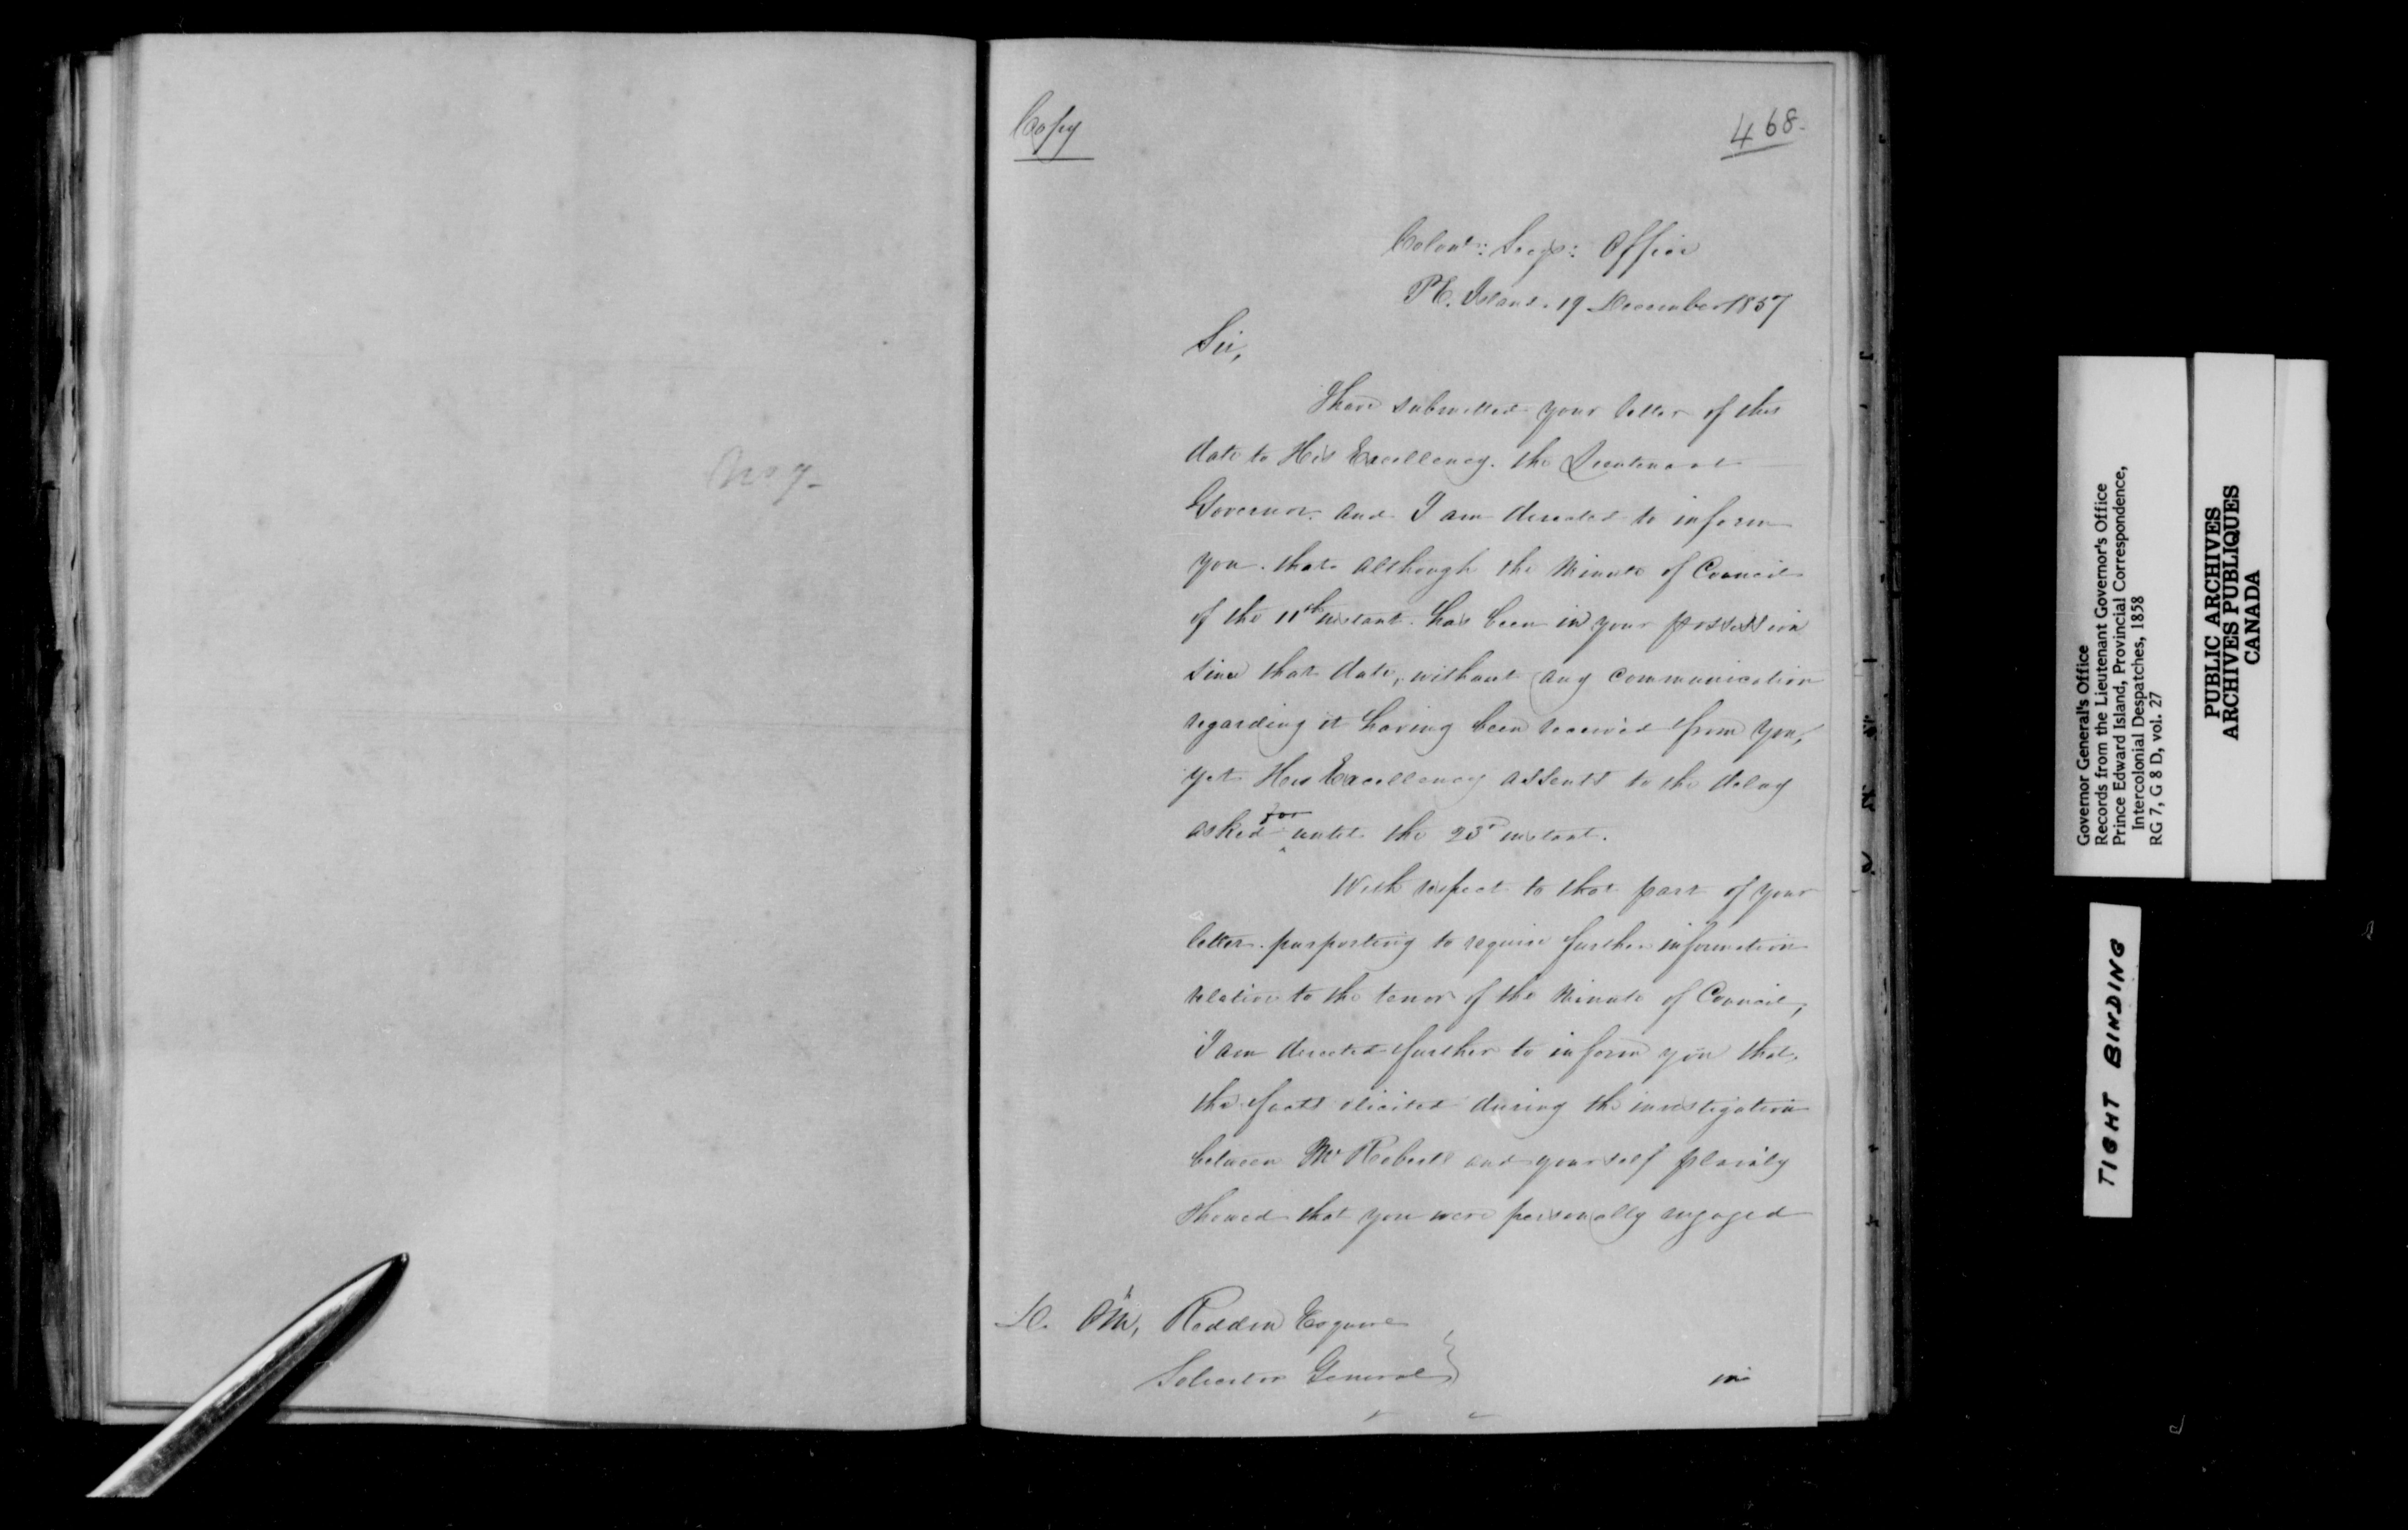 Copy
468.
Colonl: Secys: Office
P.E. Island. 19 December 1857
Sir,
I have submitted your letter of this
date to His Excellency. the Lieutenant
Governor. and I am directed to inform
you. that although the Minute of Council
of the 11th instant. has been in your possession
since that date, without any communication
regarding it having been received from you,
yet His Excellency assents to the delay
asked for until the 23d instant.
With respect to that part of your
letter. purporting to require further information
relative to the tenor of the Minute of Council,
I am directed further to inform you that,
the facts elicited during the investigation
between Mr Roberts and yourself plainly
showed that you were personally engaged
D. OM, Reddin Esquire
Solicitor General
in
Governor General's Office
Records from the Lieutenant Governor's Office
Prince Edward Island, Provincial Correspondence,
Intercolonial Despatches, 1858
RG 7, G 8 D, vol. 27
PUBLIC ARCHIVES
ARCHIVES PUBLIQUES
CANADA
TIGHT BINDING